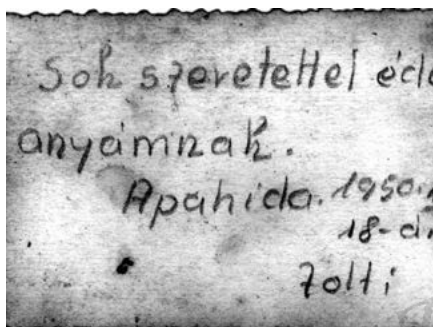 Sok szeretettel éde
anyámnak.
Apahida. 1950.
18-án
Zolti